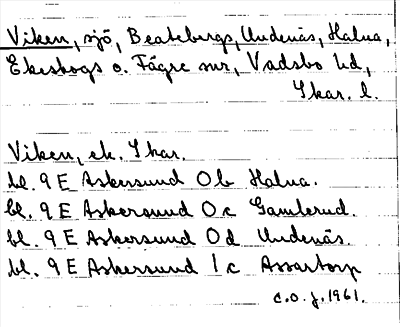 Viken, sjö, Beatebergs, Undenäs, Halna,
Ekeskogs o. Fägre snr, Vadsbo hd,
Skar. l.
Viken, ek. Skar.
bl. 9 E Askersund 0 b Halna.
bl. 9 E Askersund 0 c Gamlerud.
bl. 9 E Askersund 0 d Undenäs.
bl. 9 E Askersund 1 c Assartorp
C.O.J. 1961.